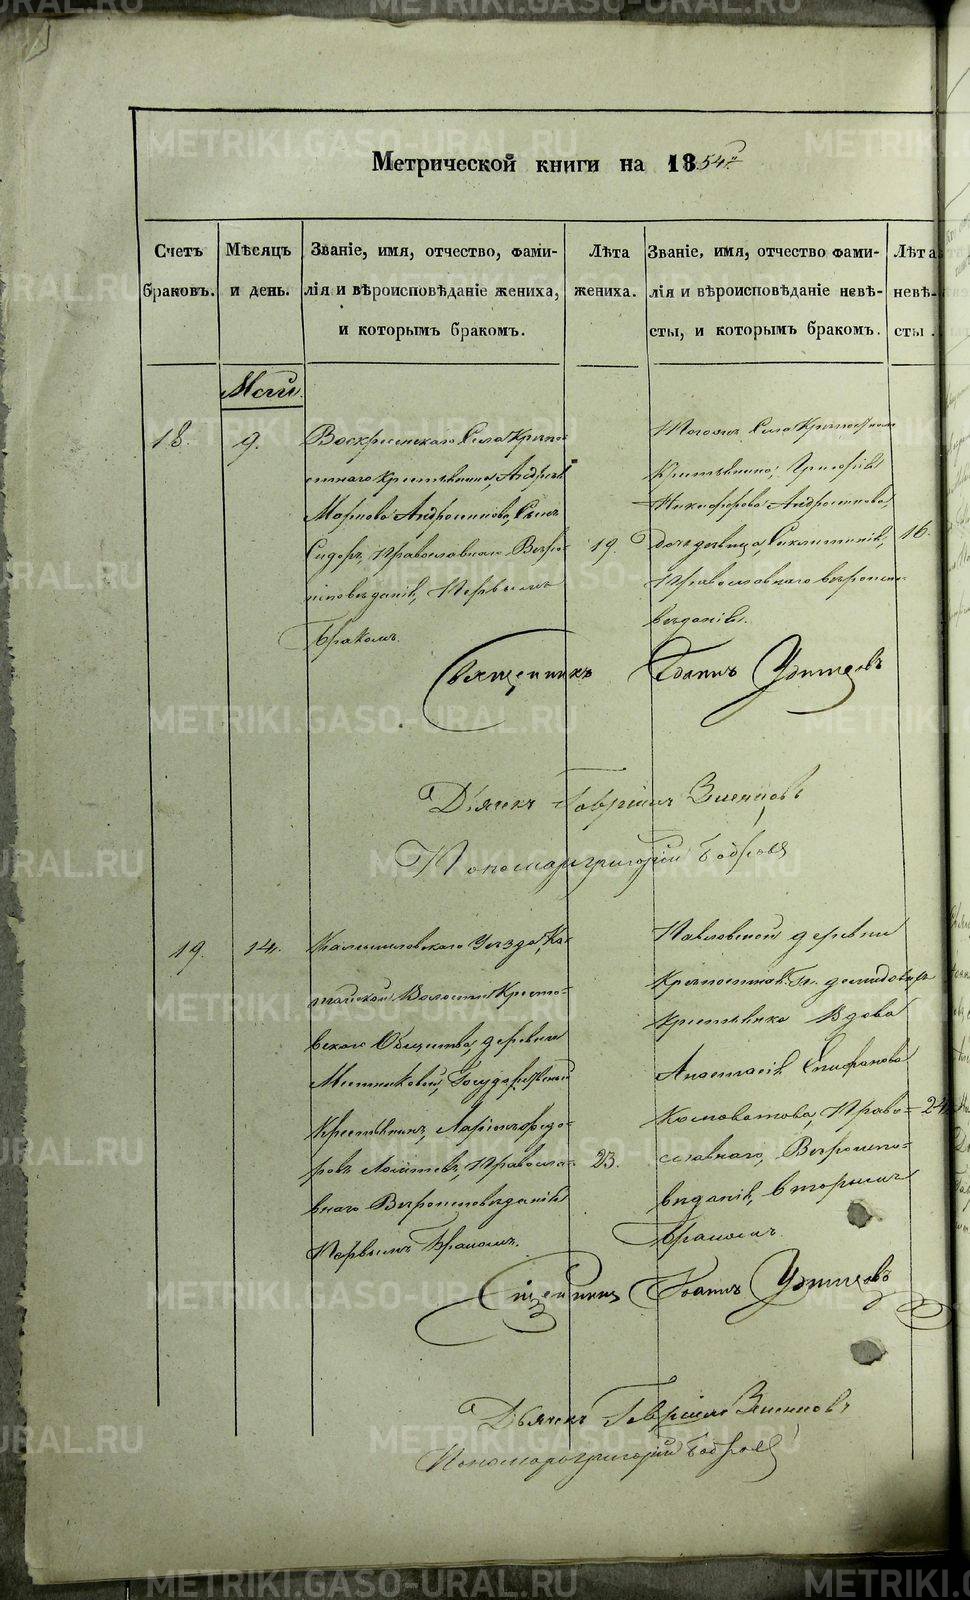 Метрической книги на 1854 г.
Счетъ браковъ.
Мѣсяцъ и день.
Званіе, имя, отчество, фами-
лія и вѣроисповѣданіе жениха,
и которымъ бракомъ.
Лѣта жениха.
Званіе, имя, отчество фами-
лія и вѣроисповѣданіе невѣ-
сты, и которымъ бракомъ.
Лѣта невѣ-
сты.
Маій.
18.
9.
Воскресенскаго Села Крѣпос
стнаго крестьянина, Андрея
Маркова Андроникова, Сынъ
Сидоръ, Православнаго Вѣро-
исповѣданія, Первымъ
бракомъ.
19.
Тогожъ Села Крѣпостнаго
Крестьянина, Григорія
Никифорова Андроникова,
дочь девица,
Православнаго вѣроиспо-
вѣданія.
16.
Священникъ Іоаннъ Удинцовъ
Дьячекъ Гавріилъ
Пономарь григорій Бобровъ
19.
14.
Камышловскаго Уѣзда, Ка-
тайской Волости Кресто-
вскаго Общества, деревни
Государственный
Крестьянинъ, Ларіонъ Федо-
ровъ Православ-
внаго Вѣроисповѣданія
Первымъ Бракомъ.
23.
Павловской деревни
Крѣпостная Гг. демидовыхъ
Крестьянка Вдова
Анастасія Епифанова
Право-
славнаго, Вѣроиспо-
вѣданія, вторымъ
бракомъ.
24.
Священникъ Іоаннъ Удинцовъ
Дьячекъ Гавріилъ
Пономарь григорій Бобровъ
METRIKI.GASO-URAL.RU